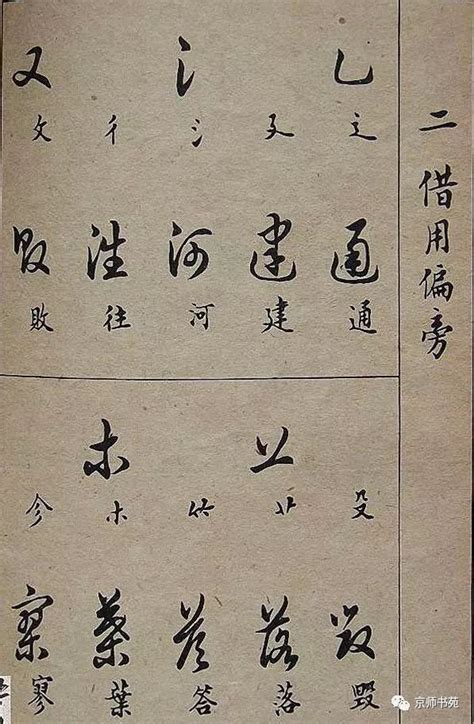 二 借用偏旁
辶 廴 氵 彳 攵
通 建 河 往 敗
通 建 河 往 敗
殳 艹 木
毀 落 答 葉 寥
毀 落 答 葉 寥
京师书苑